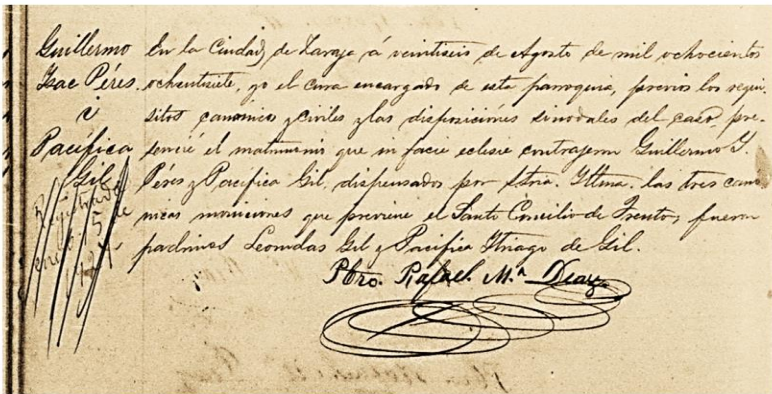 Guillermo
Isac Péres
i
Pacífica
Gil
En la Ciudad de Zaraza á veintiseis de Agosto de mil ochocientos
ochentisiete, yo el cura encargado de esta parroquia, previos los requi-
sitos canónicos y civiles y las disposiciónes sinodales del caso, pre-
sencié el matrimonio que in facie eclesie contrajeron Guillermo I.
Péres y Pacífica Gil, dispensados por Stria. Iltma. las tres canó-
nicas moniciones que previene el Santo Concilio de Trento, fueron
padrinos Leonidas Gil y Pacífica Itriago de Gil.
Pbro. Rafael M.ª Diaz